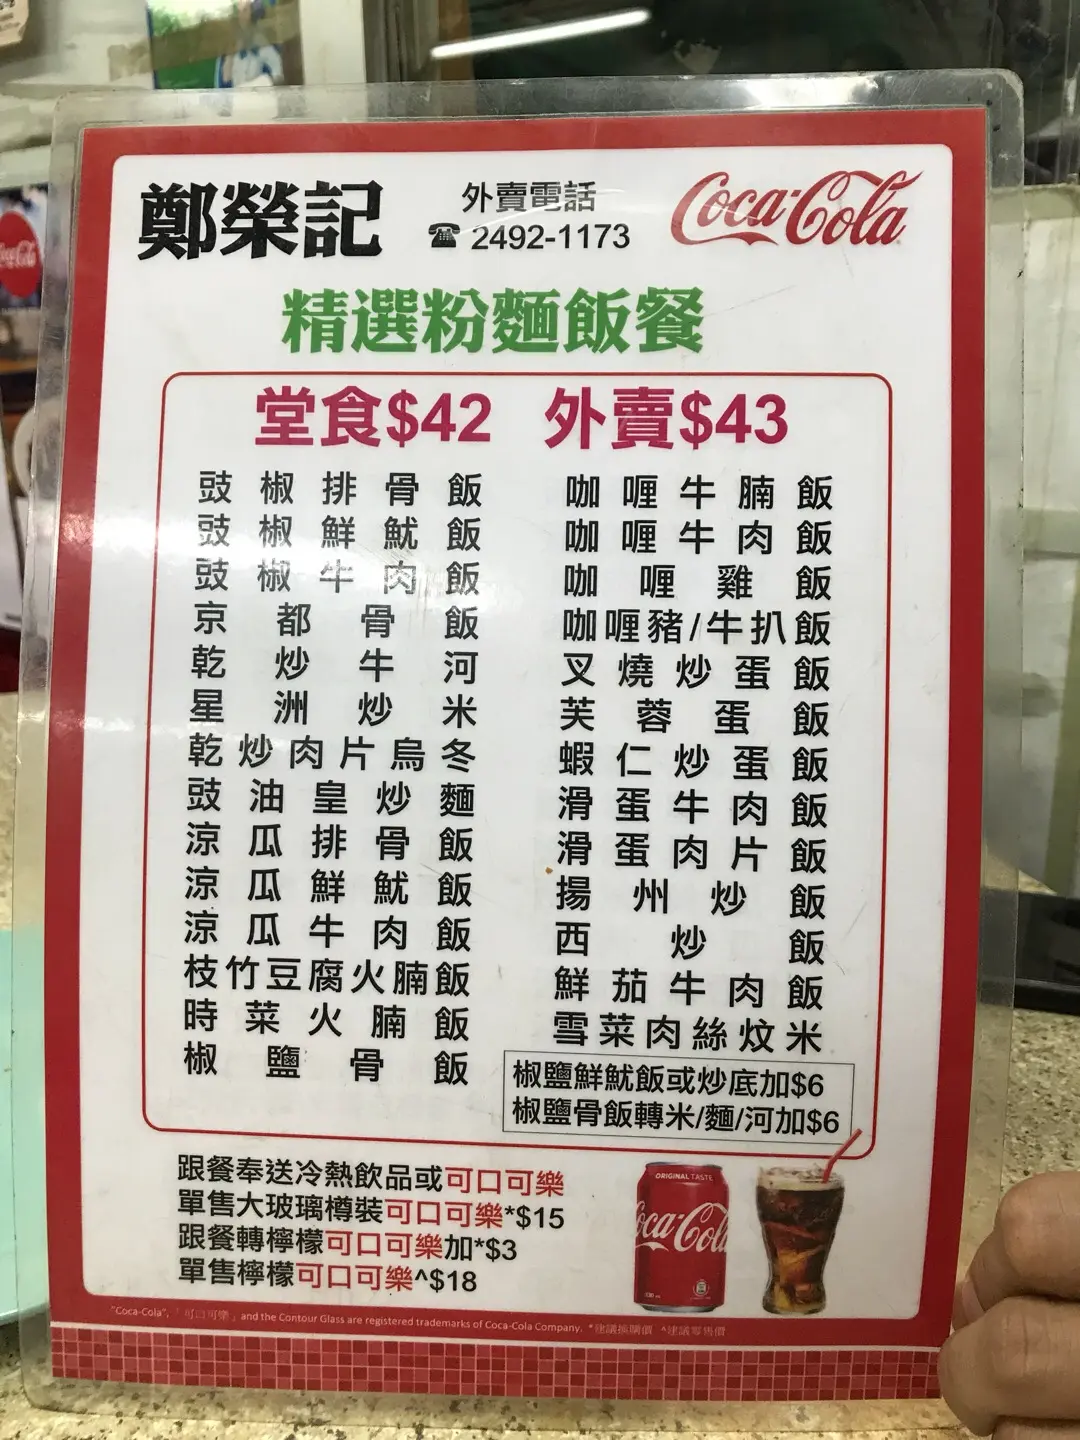 鄭榮記
外賣電話
☎ 2492-1173
Coca-Cola
精選粉麵飯餐
堂食$42 外賣$43
豉椒排骨飯
豉椒鮮魷飯
豉椒牛肉飯
京都骨飯
乾炒牛河
星洲炒米
乾炒肉片烏冬
豉油皇炒麵
涼瓜排骨飯
涼瓜鮮魷飯
涼瓜牛肉飯
枝竹豆腐火腩飯
時菜火腩飯
椒鹽骨飯
咖喱牛腩飯
咖喱牛肉飯
咖喱雞飯
咖喱豬/牛扒飯
叉燒炒蛋飯
芙蓉蛋飯
蝦仁炒蛋飯
滑蛋牛肉飯
滑蛋肉片飯
揚州炒飯
西炒飯
鮮茄牛肉飯
雪菜肉絲炆米
椒鹽鮮魷飯或炒底加$6
椒鹽骨飯轉米/麵/河加$6
跟餐奉送冷熱飲品或可口可樂
單售大玻璃樽裝可口可樂*$15
跟餐轉檸檬可口可樂加*$3
單售檸檬可口可樂^$18
ORIGINAL TASTE
Coca-Cola
"Coca-Cola", 「可口可樂」 and the Contour Glass are registered trademarks of Coca-Cola Company. *建議換購價 ^建議零售價